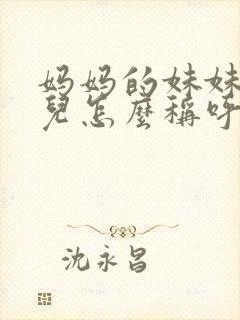 妈妈的妹妹
兒怎麼稱呼
沈永昌